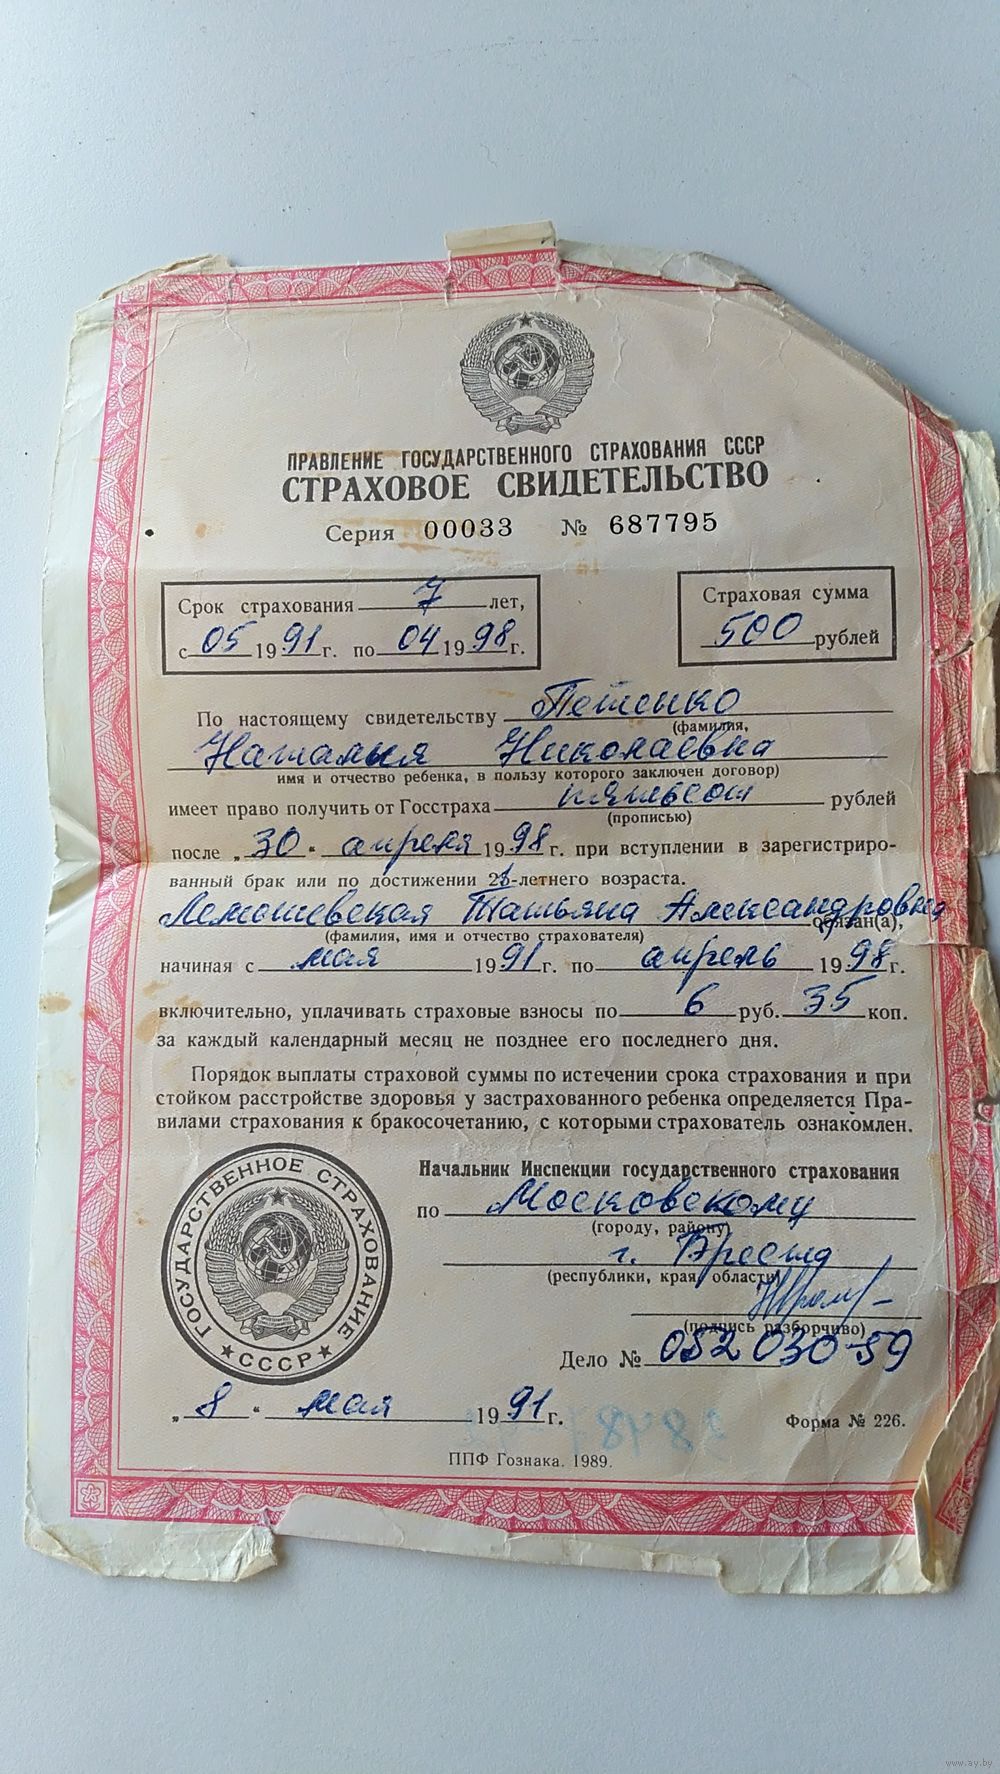 ПРАВЛЕНИЕ ГОСУДАРСТВЕННОГО СТРАХОВАНИЯ СССР
СТРАХОВОЕ СВИДЕТЕЛЬСТВО
Серия 00033 № 687795
Срок страхования 7 лет,
с 05 1991 г. по 04 1998 г.
Страховая сумма
500 рублей
По настоящему свидетельству Петенко
(фамилия,
Наталья Николаевна
имя и отчество ребенка, в пользу которого заключен договор)
имеет право получить от Госстраха пятьсот рублей
(прописью)
после „30“ апреля 1998 г. при вступлении в зарегистриро-
ванный брак или по достижении 21-летнего возраста.
Лемошевская Татьяна Александровна обязан(а),
(фамилия, имя и отчество страхователя)
начиная с мая 1991 г. по апрель 1998 г.
включительно, уплачивать страховые взносы по 6 руб. 35 коп.
за каждый календарный месяц не позднее его последнего дня.
Порядок выплаты страховой суммы по истечении срока страхования и при
стойком расстройстве здоровья у застрахованного ребенка определяется Пра-
вилами страхования к бракосочетанию, с которыми страхователь ознакомлен.
Начальник Инспекции государственного страхования
по Московскому
(городу, району)
г. Бреста
(республики, края, области)
(подпись разборчиво)
Дело № 052 030-59
„8“ мая 1991 г.
Форма № 226.
ППФ Гознака. 1989.
ГОСУДАРСТВЕННОЕ СТРАХОВАНИЕ
★ СССР ★
www.ay.by